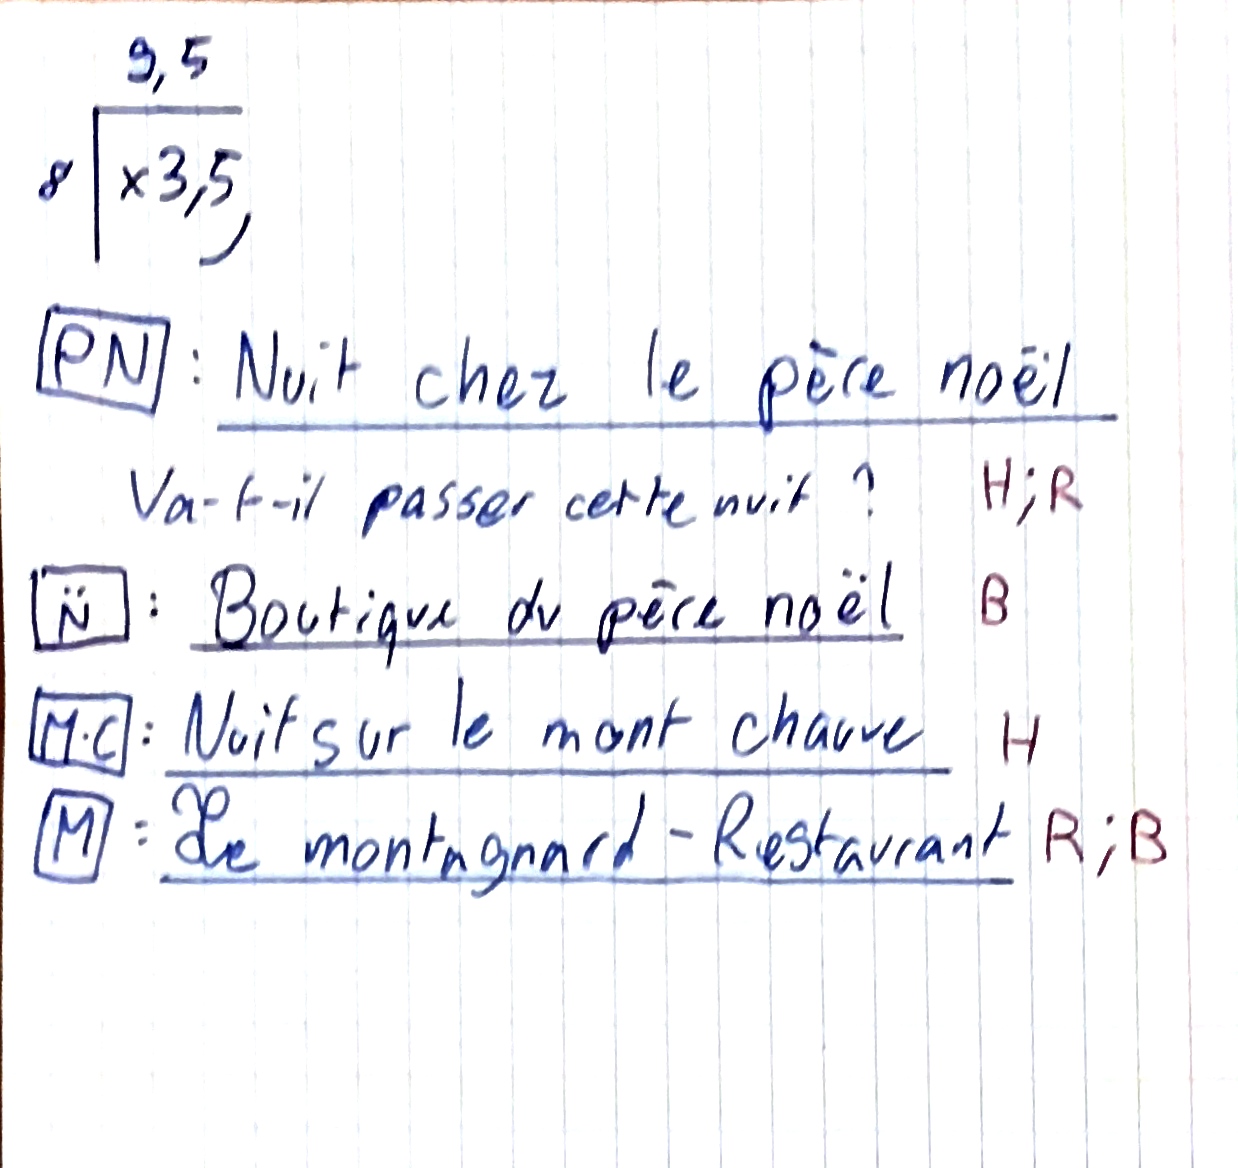 9,5
8 ×3,5
PN : Nuit chez le père noël
Va-t-il passer cette nuit ? H;R
N̈ : Boutique du père noël B
M.C : Nuit sur le mont chauve H
M : Le montagnard - Restaurant R;B